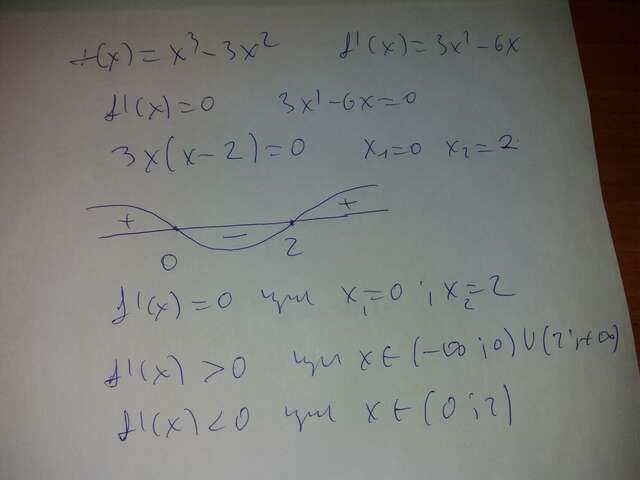 f(x) = x³ - 3x² f'(x) = 3x² - 6x
f'(x) = 0 3x² - 6x = 0
3x(x - 2) = 0 x₁ = 0 x₂ = 2
+ - +
0 2
f'(x) = 0 при x₁ = 0 ; x₂ = 2
f'(x) > 0 при x ∈ (-∞ ; 0) ∪ (2 ; +∞)
f'(x) < 0 при x ∈ (0 ; 2)